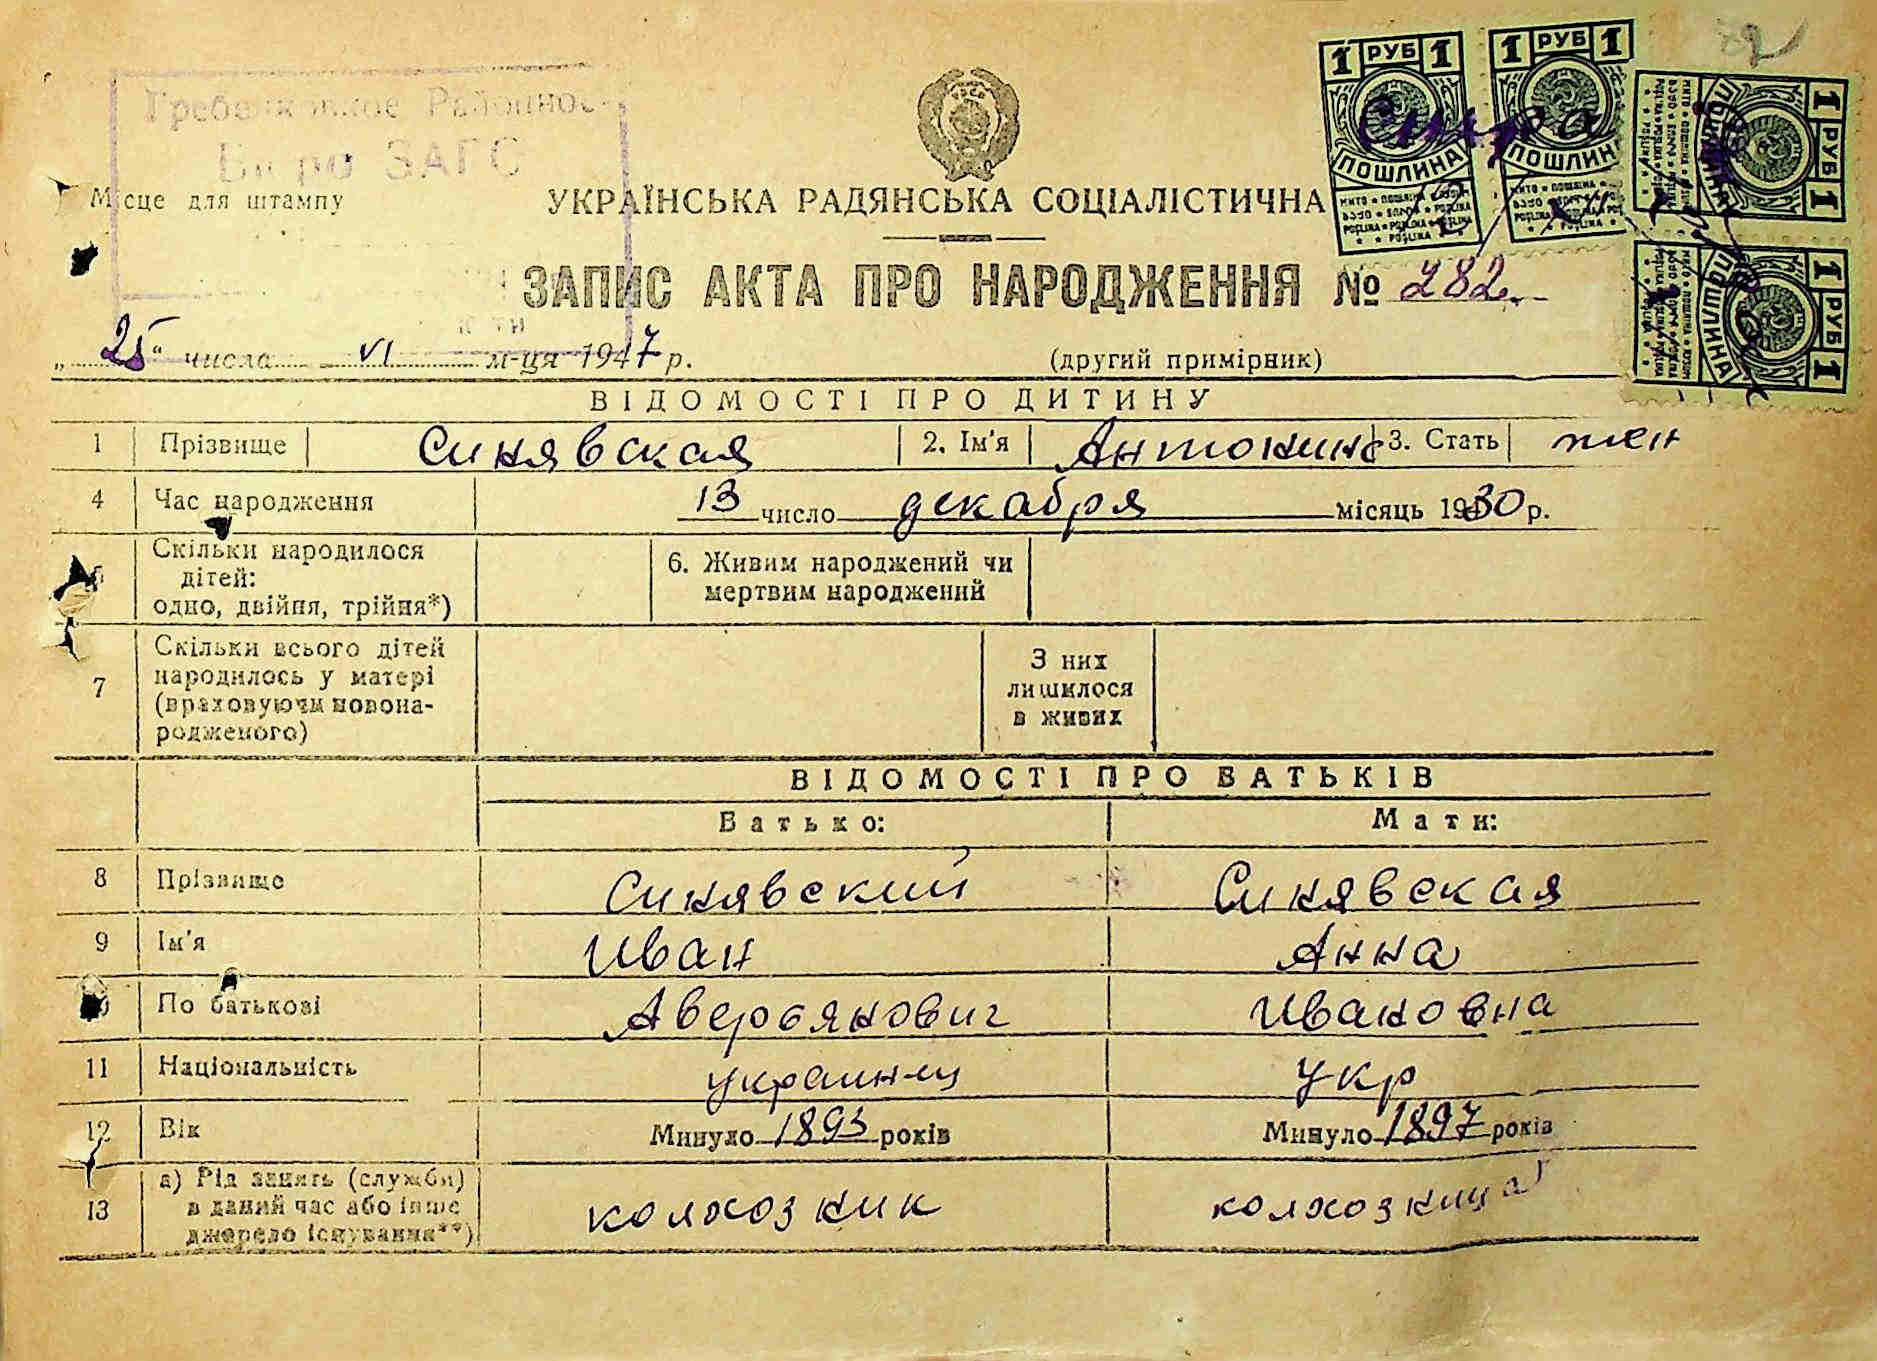 82
Районное
Бюро ЗАГС
Місце для штампу
УКРАЇНСЬКА РАДЯНСЬКА СОЦІАЛІСТИЧНА
ЗАПИС АКТА ПРО НАРОДЖЕННЯ № 282
„25“ числа VI м-ця 1947 р. (другий примірник)
ВІДОМОСТІ ПРО ДИТИНУ
1 Прізвище Синявская 2. Ім'я Антонина 3. Стать жен
4 Час народження 13 число декабря місяць 1930 р.
5 Скільки народилося дітей: одно, двійня, трійня*) 6. Живим народжений чи мертвим народжений
7 Скільки всього дітей народилось у матері (враховуючи новонародженого) З них лишилося в живих
ВІДОМОСТІ ПРО БАТЬКІВ
Батько: Мати:
8 Прізвище Синявский Синявская
9 Ім'я Иван Анна
10 По батькові Аверьянович Ивановна
11 Національність украинец укр
12 Вік Минуло 1893 років Минуло 1897 років
13 а) Рід занять (служби) в даний час або інше джерело існування**) колхозник колхозница
1 РУБ 1
ПОШЛИНА
1 РУБ 1
ПОШЛИНА
1 РУБ 1
ПОШЛИНА
1 РУБ 1
ПОШЛИНА